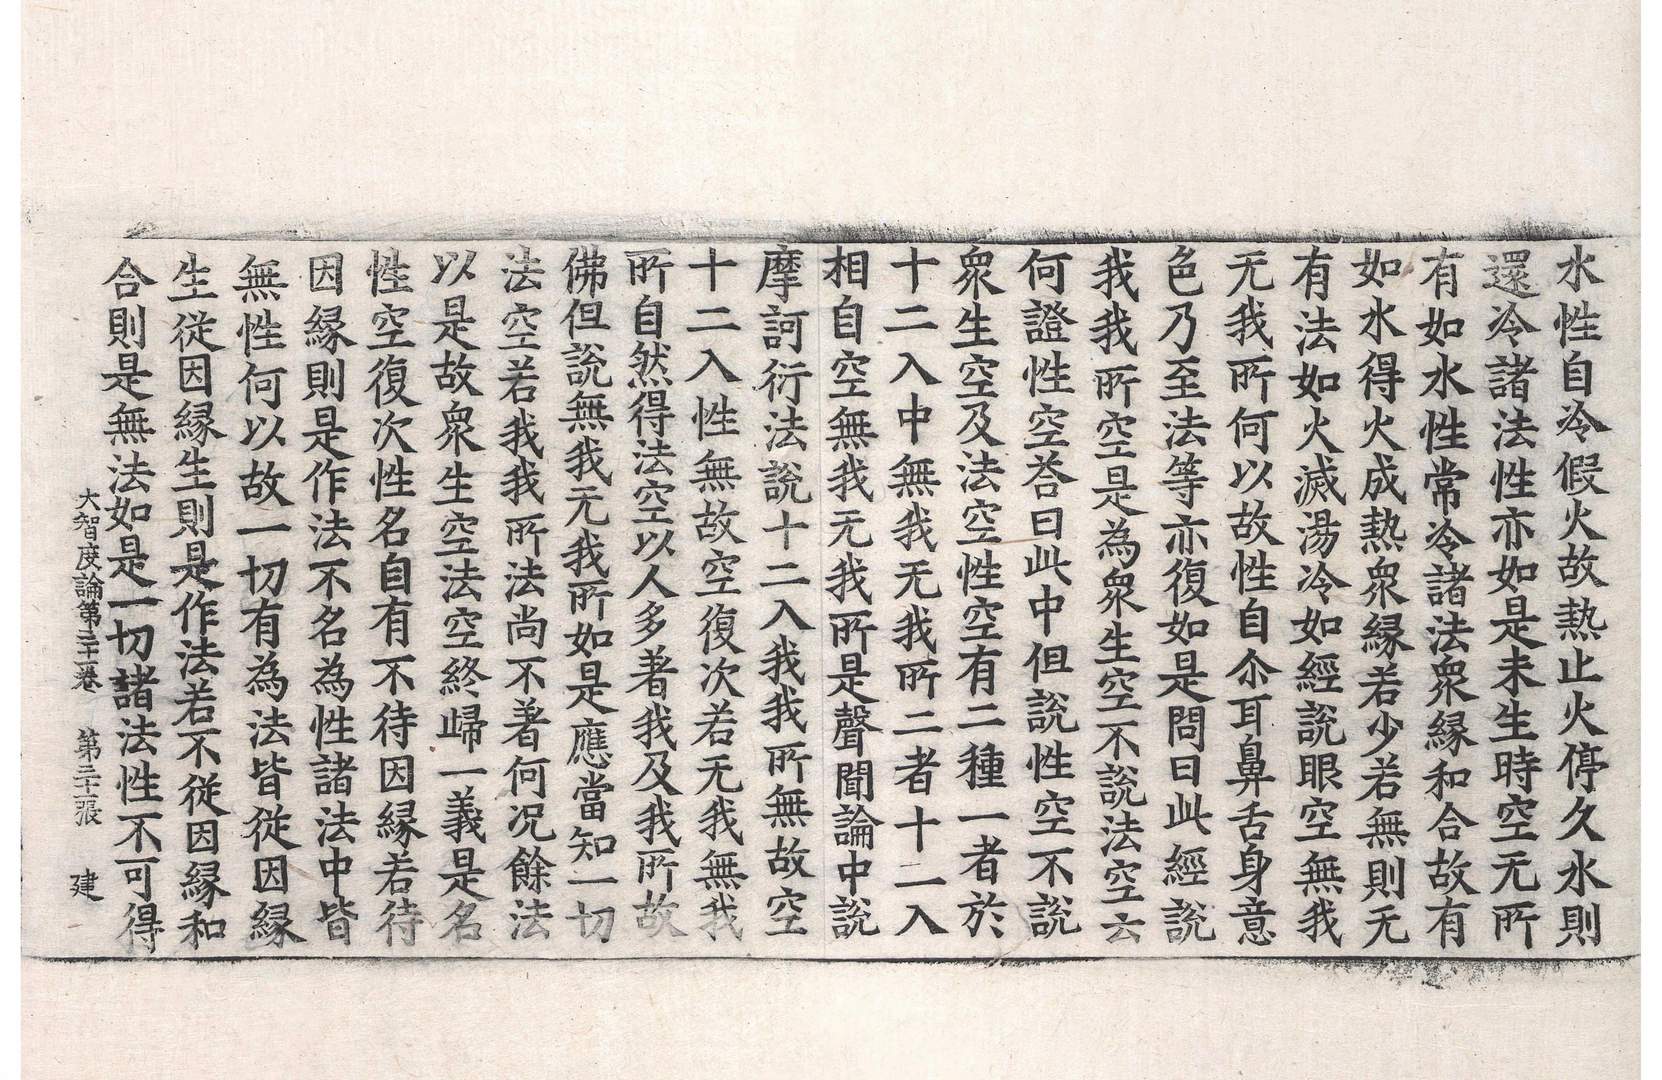 水性自冷假火故熱止火停久水則
還冷諸法性亦如是未生時空无所
有如水性常冷諸法衆緣和合故有
如水得火成熱衆緣若少若無則无
有法如火滅湯冷如經說眼空無我
无我所何以故性自尒耳鼻舌身意
色乃至法等亦復如是問曰此經說
我我所空是為衆生空不說法空云
何證性空荅曰此中但說性空不說
衆生空及法空性空有二種一者於
十二入中無我无我所二者十二入
相自空無我无我所是聲聞論中說
摩訶衍法說十二入我我所無故空
十二入性無故空復次若无我無我
所自然得法空以人多著我及我所故
佛但說無我无我所如是應當知一切
法空若我我所法尚不著何况餘法
以是故衆生空法空終歸一義是名
性空復次性名自有不待因緣若待
因緣則是作法不名為性諸法中皆
無性何以故一切有為法皆從因緣
生從因緣生則是作法若不從因緣和
合則是無法如是一切諸法性不可得
大智度論第三十一卷 第三十二張 建